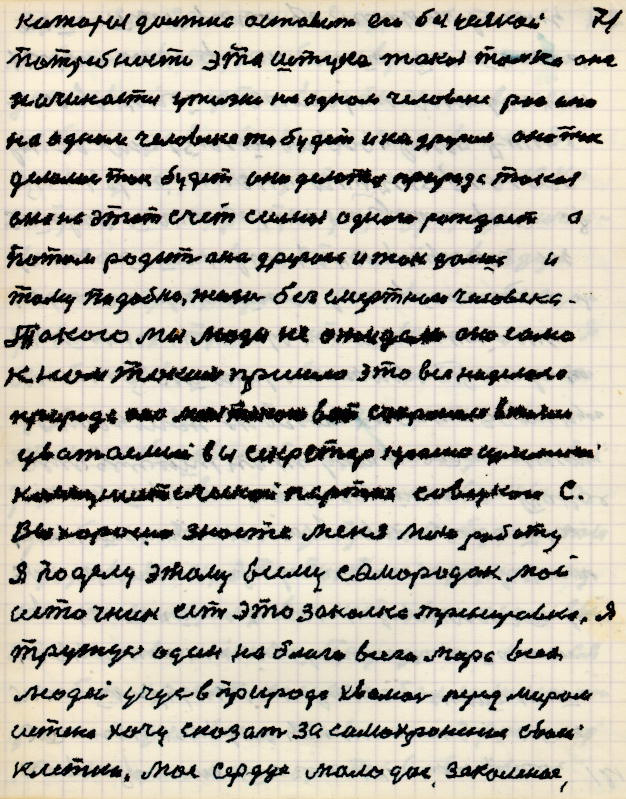 которая должна оставит его без всякой 71
потребности эта штука такая только она
начинается у жизни на одном человеке раз оно
на одном человеке то будет и на другом оно так
делалос так будет оно делатся природа такая
она на этот счет сама одного рождает а
потом родит она другого и так далше и
тому подобно, жизни безсмертного человека.
Такого мы люди не ожидали оно само
к ном таким пришло это все наделало
природа
уважаемый вы секретар
партии совцкого С.
Вы хорошо знаете меня мою работу
Я по делу этому всему самородок мой
источник ест это закалка тренировка, я
тружус один на благо всего мира всех
людей учус в природе хвалюс перед миром
истено хочу сказат за самохронение своей
клетки, мое сердце молодое, закаленое,